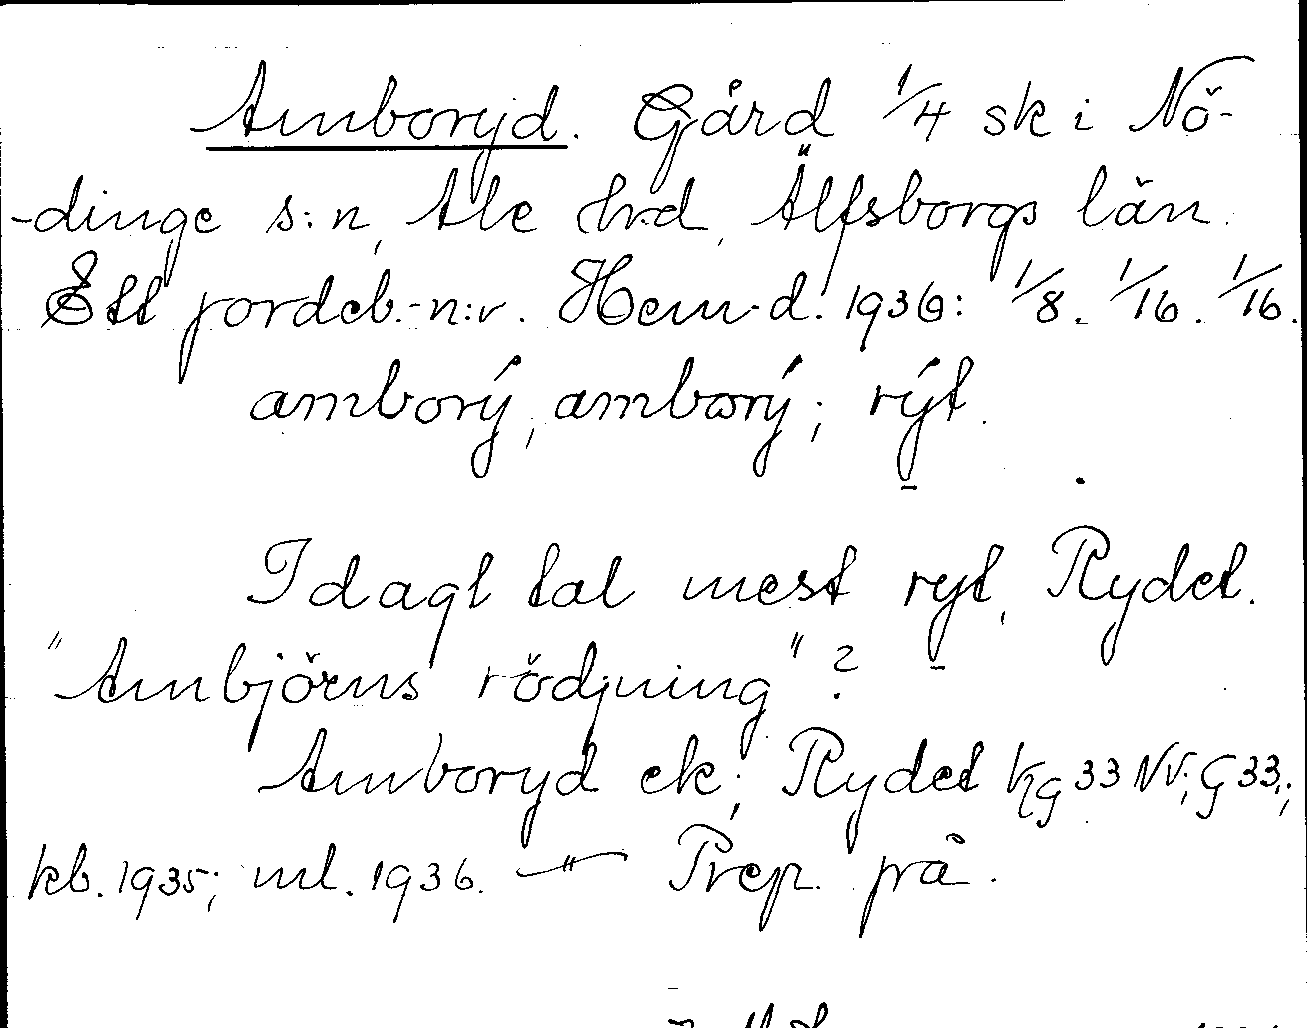 Amboryd. Gård 1/4 sk i Nö-
-dinge s:n, Ale hrd, Älfsborgs län.
Ett jordeb.-n:r. Hem.d. 1936: 1/8. 1/16. 1/16.
amborý, ambɷrý; rýt.
I dagl tal mest ryt, Rydet.
"Ambjörns rödjning"?
Amboryd ek; Rydet kg 33 NV; G 33;
kb. 1935; ml. 1936. —"— Prep. på.